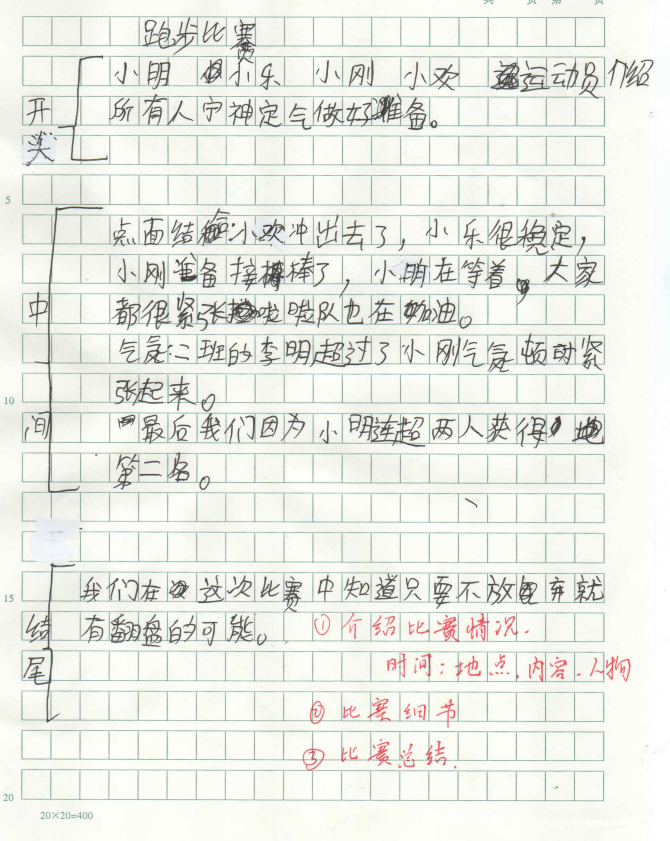 共 页 第 页
跑步比赛
小明 小乐 小刚 小欢 运动员介绍
开 所有人宁神定气做好准备。
头
5
点面结合:小欢冲出去了，小乐很稳定，
小刚准备接棒了，小明在等着，大家
中 都很紧张啦啦队也在加油。
气氛:二班的李明超过了小刚气氛顿时紧
10 张起来。
间 最后我们因为小明连超两人获得
第二名。
15 我们在这次比赛中知道只要不放弃就
结 有翻盘的可能。 ①介绍比赛情况.
尾 时间:地点.内容.人物
②比赛细节
③比赛总结.
20
20×20=400